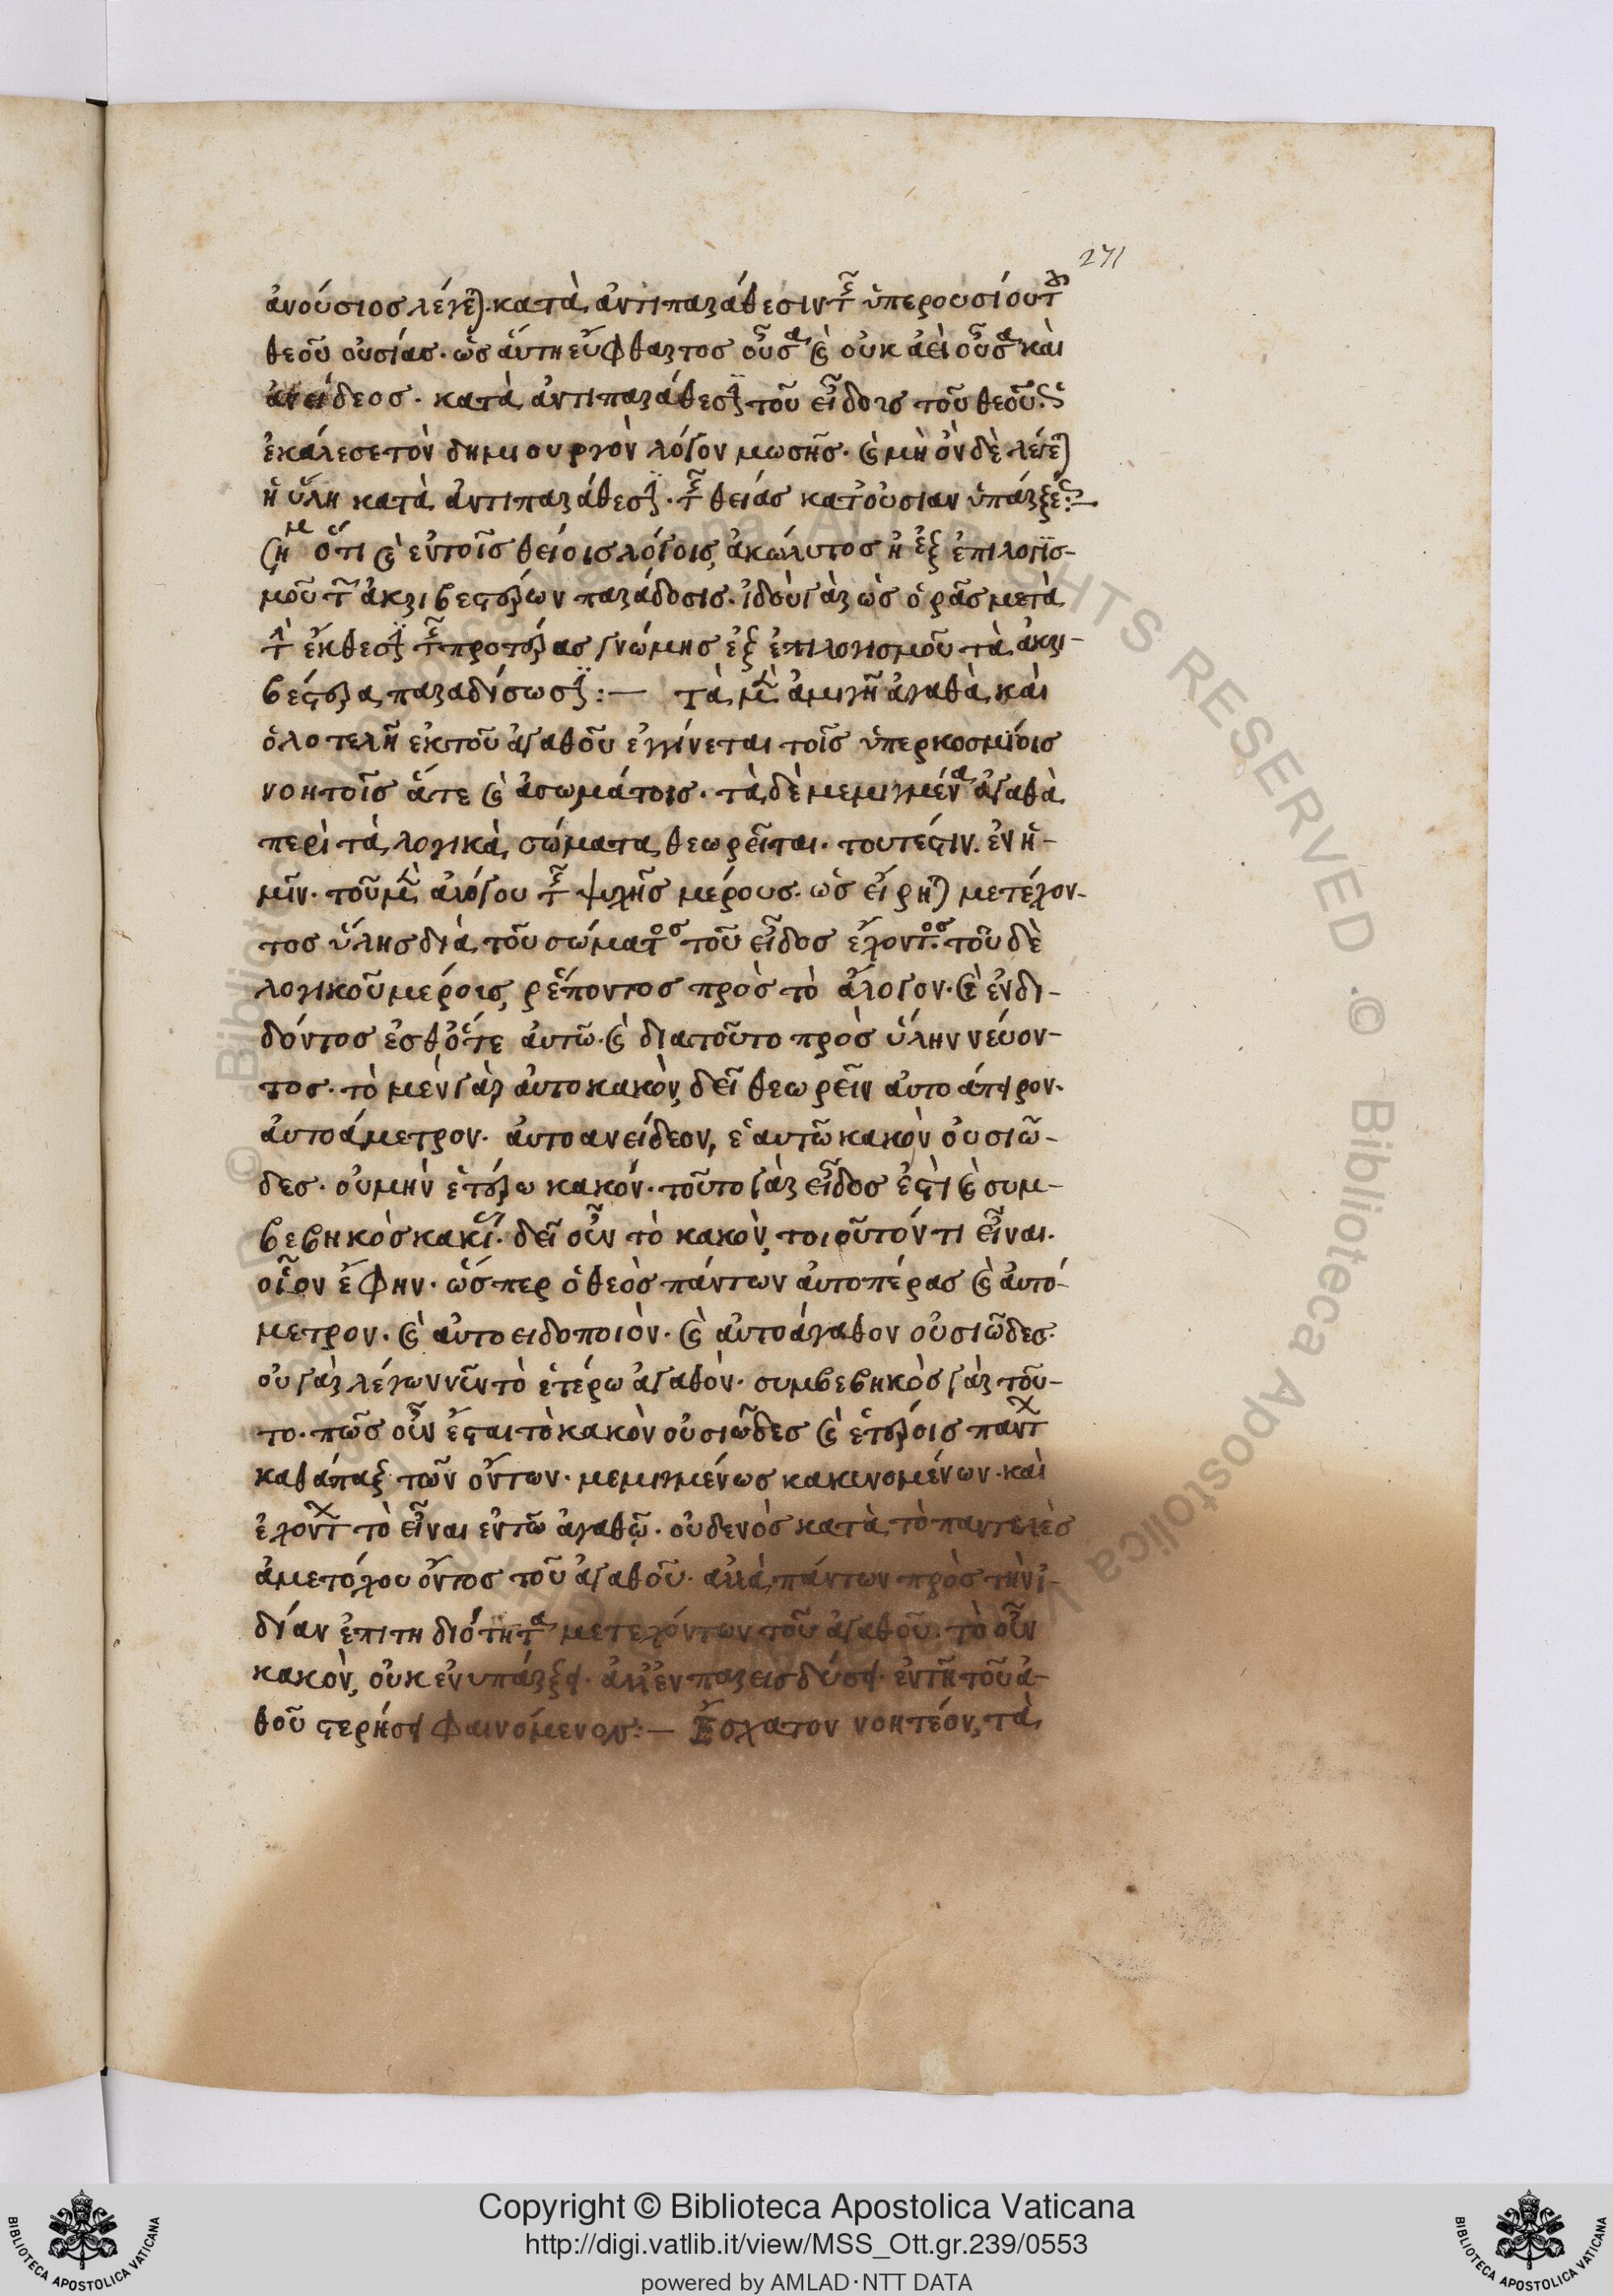 271
ἀνούσιος λέγε). κατὰ ἀντιπαράθεσιν τῆς ὑπερουσίου τοῦ
θεοῦ οὐσίας. ὡς ἄυτη εὔφθαρτος οὖσα καὶ οὐκ ἀεὶ οὖσα καὶ
ἀνείδεος. κατὰ ἀντιπαράθεσιν τοῦ εἴδους τοῦ θεοῦ. ὃ
ἐκάλεσε τὸν δημιουργὸν λόγον μωσῆς. καὶ μὴ ὂν δὲ λέγε)
ἡ ὕλη κατὰ ἀντιπαράθεσιν. τῆς θείας κατ᾽ οὐσιαν ὑπάρξεως:—
ση(μ) ὅτι καὶ εν τοῖς θείοις λόγοις, ἀκώλυτος ἡ ἐξ ἐπιλογισ-
μοῦ τῶν ἀκριβεστέρων παράδοσις. ἰδοὺ γὰρ ὡς ὁρᾶς μετὰ
τὴν ἔκθεσιν τῆς προτέρας γνώμης ἐξ ἐπιλογισμοῦ τὰ ἀκρι-
βέστερα παραδίσωσιν:— τὰ μὲν ἀμιγῆ ἀγαθὰ καὶ
ὁλοτελῆ εκ τοῦ ἀγαθοῦ ἐγγίνεται τοῖς ὑπερκοσμίοις
νοητοῖς ἅτε καὶ ἀσωμάτοις. τὰ δὲ μεμιγμένα ἀγαθὰ
περὶ τὰ λογικὰ σώματα θεωρεῖται. τουτέστιν. ἐν ἡ-
μῖν. τοῦ μὲν ἀλόγου τῆς ψυχῆς μέρους. ὡς εἴρη) μετέχον-
τος ὕλης διὰ τοῦ σώματος τοῦ εἶδος ἔχοντος. τοῦ δὲ
λογικοῦ μέρους, ρέποντος πρὸς τὸ ἄλογον. καὶ ἐνδι-
δόντος ἐσθ᾽ ὅτε ἀυτῶ. καὶ διατοῦτο πρὸς ὕλην νεύον-
τος. τὸ μὲν γὰρ ἀυτοκακὸν, δεῖ θεωρεῖν ἀυτοάπειρον.
ἀυτοάμετρον. ἀυτοανείδεον, ἑαυτῶ κακὸν ὀυσιῶ-
δες. ὀυ μὴν ἑτέρω κακόν. τοῦτο γὰρ εἶδος ἐστὶ καὶ συμ-
βεβηκὸς κακοῦ. δεῖ οὖν τὸ κακὸν, τοιοῦτόν τι εἶναι.
οἷον ἔφην. ὥσπερ ὁ θεὸς πάντων ἀυτοπέρας καὶ ἀυτό-
μετρον. καὶ ἀυτοειδοποιὸν. καὶ ἀυτοάγαθον οὐσιῶδες.
ὀυ γὰρ λέγων νῦν τὸ ἑτέρω ἀγαθὸν. συμβεβηκὸς γὰρ τοῦ-
το. πῶς οὖν ἔσται τὸ κακὸν οὐσιῶδες καὶ ἑτέροις παντ
καθάπαξ τῶν ὄντων. μεμιγμένως κακινομένων. καὶ
ἐχοντ τὸ εἶναι εν τῶ ἀγαθῷ. οὐδενὸς κατὰ τὸ παντελὲς
ἀμετόχου ὄντος τοῦ ἀγαθοῦ. ἀλλὰ πάντων πρὸς τὴν ἰ-
δίαν ἐπιτηδιότητα μετεχόντων τοῦ ἀγαθοῦ. τὸ οὖν
κακὸν, οὐκ ἐν υπάρξει. ἀλλ᾽ ἐν παρεισδύσει. ἐν τῆ τοῦ ἀ-
θοῦ στερήσει φαινόμενον:— Ἔσχατον νοητέον, τὰ
Copyright © Biblioteca Apostolica Vaticana
http://digi.vatlib.it/view/MSS_Ott.gr.239/0553
powered by AMLAD·NTT DATA
BIBLIOTECA APOSTOLICA VATICANA
BIBLIOTECA APOSTOLICA VATICANA